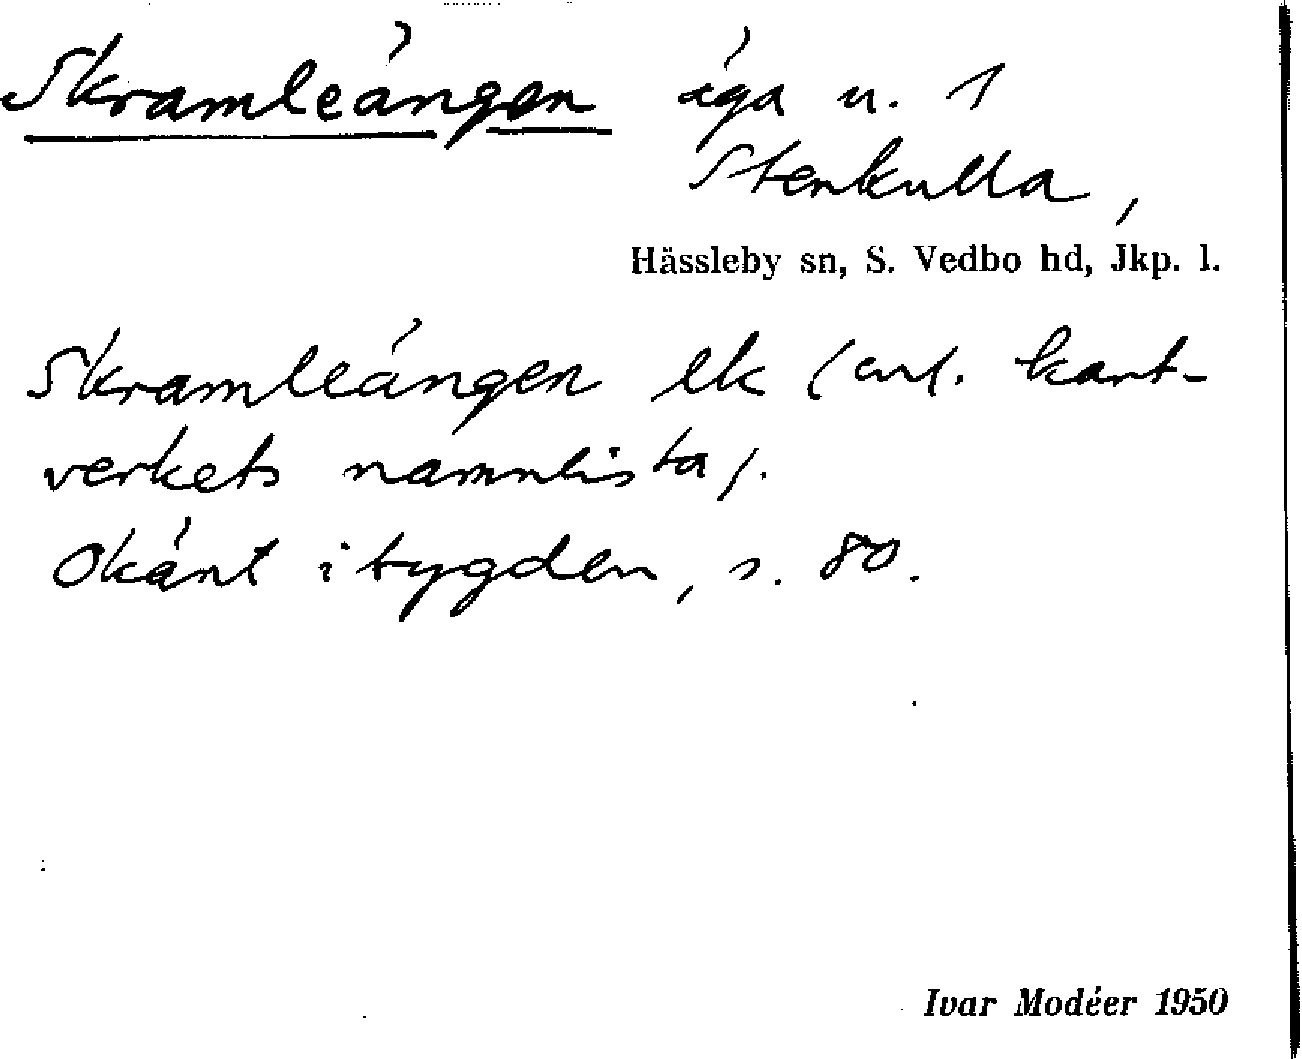 Skramleängen äga u. 1
Stenkulla,
Hässleby sn, S. Vedbo hd, Jkp. l.
Skramleängen ek (enl. kart-
verkets namnlista).
Okänt i bygden, s. 80.
Ivar Modéer 1950